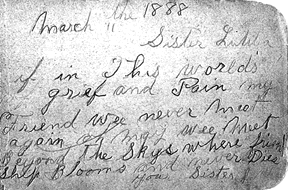 March 11 the 1888
Sister
if in This world's
grief and Pain my
Friend wee never meet
again may wee meet
Beyond The Skys where
ship Blooms and never Dies
your Sister